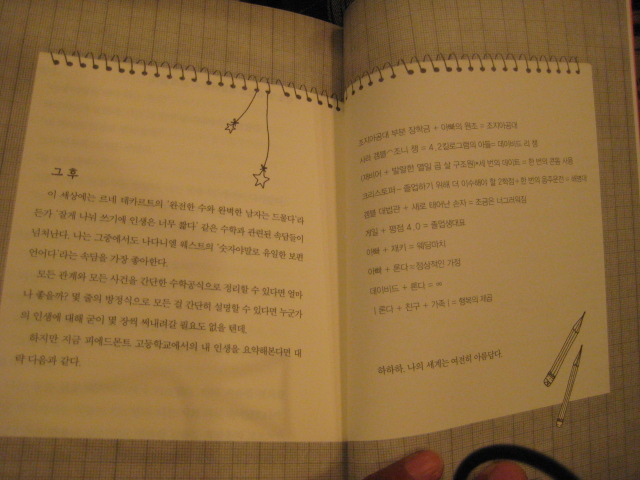 그 후
이 세상에는 르네 데카르트의 '완전한 수와 완벽한 남자는 드물다'라
든가 '잘게 나눠 쓰기에 인생은 너무 짧다' 같은 수학과 관련된 속담들이
넘쳐난다. 나는 그중에서도 나다니엘 웨스트의 '숫자야말로 유일한 보편
언어다'라는 속담을 가장 좋아한다.
모든 관계와 모든 사건을 간단한 수학공식으로 정리할 수 있다면 얼마
나 좋을까? 몇 줄의 방정식으로 모든 걸 간단히 설명할 수 있다면 누군가
의 인생에 대해 굳이 몇 장씩 써내려갈 필요도 없을 텐데.
하지만 지금 피에드몬트 고등학교에서의 내 인생을 요약해본다면 대
략 다음과 같다.
조지아공대 부분 장학금 + 아빠의 원조 = 조지아공대
사라 겜블 조니 웽 = 4.2킬로그램의 아들= 데이비드 리 웽
+ 발랄한 열일곱 살 구조원)*세 번의 데이트 = 한 번의 콘돔 사용
크리스토퍼- 졸업하기 위해 더 이수해야 할 2학점+ 한 번의 음주운전 =
겜블 대법관 + 새로 태어난 손자 = 조금은 너그러워짐
게일 + 평점 4.0 = 졸업생대표
아빠 + 재키 = 떡담미치
아빠 + 론다 = 정상적인 가정
데이비드 + 론다 = ∞
( 론다 + 친구 + 가족 ) = 행복의 제곱
하하하. 나의 세계는 여전히 아름답다.